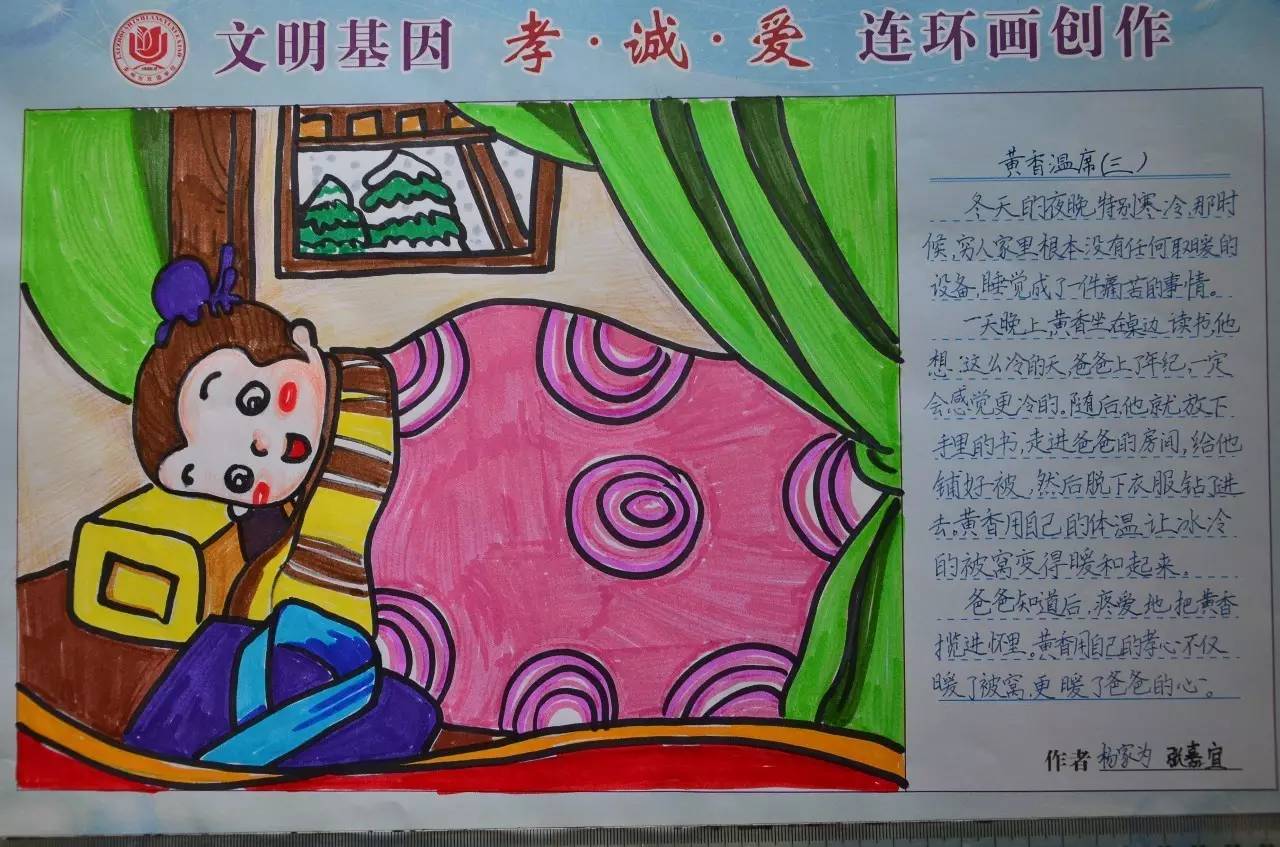 文明基因 孝·诚·爱 连环画创作
黄香温席(三)
冬天的夜晚特别寒冷,那时
候,穷人家里根本没有任何取暖的
设备,睡觉成了一件痛苦的事情。
一天晚上,黄香坐在桌边读书,他
想:这么冷的天,爸爸上了年纪,一定
会感觉更冷的。随后,他就放下
手里的书,走进爸爸的房间,给他
铺好被,然后脱下衣服钻了进
去。黄香用自己的体温,让冰冷
的被窝变得暖和起来。
爸爸知道后,疼爱地把黄香
揽进怀里。黄香用自己的孝心不仅
暖了被窝,更暖了爸爸的心。
作者 杨家为 张嘉宜